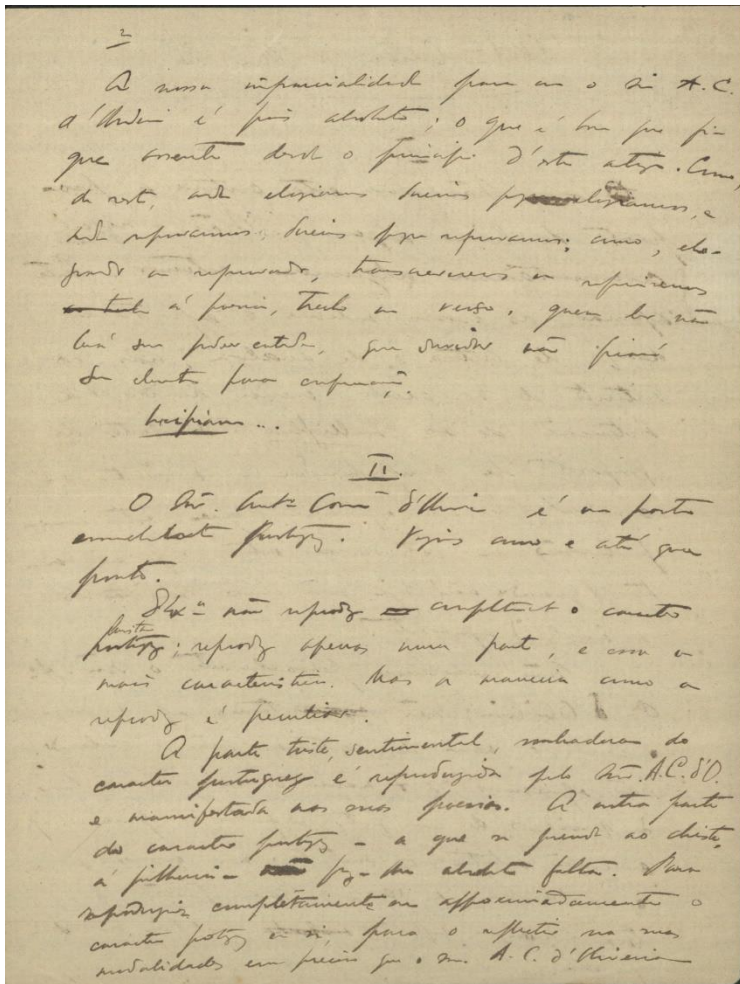 2
A nossa imparcialidade para com o sr. A. C.
d'Oliveira é pois absoluta; o que é bom que fi-
que assente desde o principio d'este artigo. Como,
de resto, onde elogiamos diremos elogiamos, e
onde reprovamos diremos reprovamos; como, elo-
giando ou reprovando, transcreveremos ou
á poesia, trecho ou verso, quem ler não
terá
para
Principiemos...
II.
O Snr. Antº Corrêa d'Oliveira é um poeta
portuguez. Vejamos como e até que
ponto.
S. Exª não reproduz completamente o caracter
portuguez; reproduz apenas uma parte, e essa a
mais caracteristica. Mas a maneira como a
reproduz é peculiar.
A parte triste, sentimental, sonhadora do
caracter portuguez é reproduzida pelo Snr. A. C. d'O.
e manifestada nas suas poesias. A outra parte
do caracter portuguez – a que se prende ao chiste,
á pilheria – faz-lhe absoluta falta. Para
reproduzir completamente ou approximadamente o
caracter portuguez em si, para o reflectir nas suas
modalidades era preciso que o snr. A. C. d'Oliveira